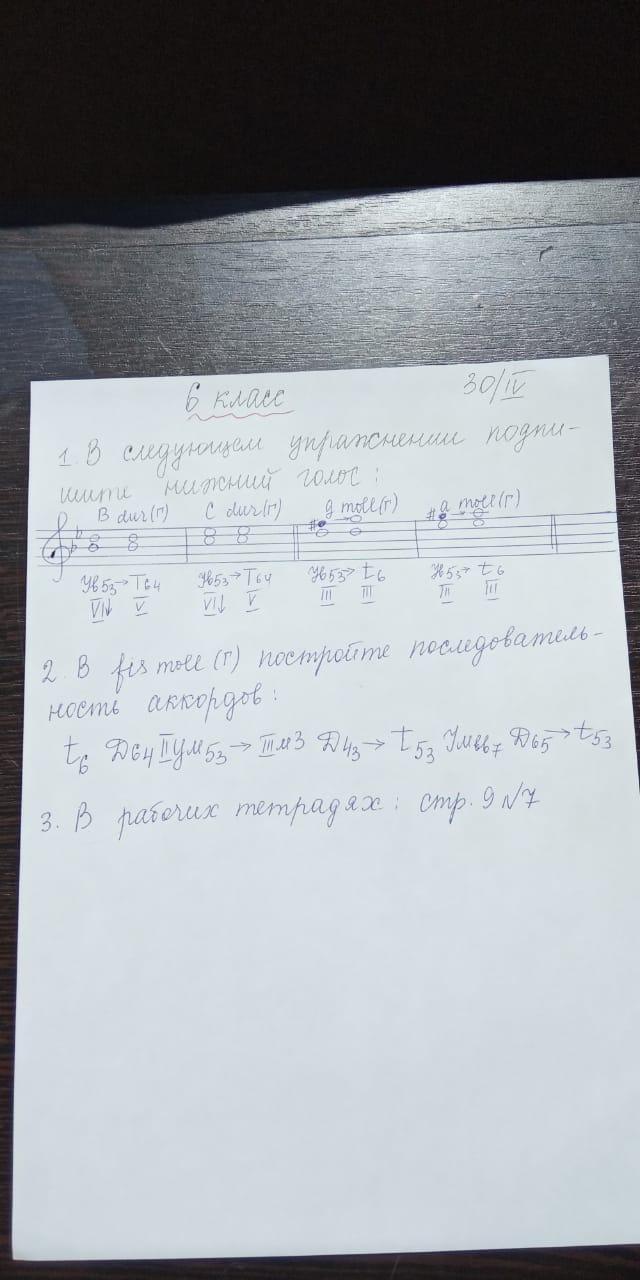 6 класс 30/IV
1. В следующем упражнении подпи-
шите нижний голос:
B dur(г) C dur(г) g moll(г) a moll(г)
Ув53→T64 Ув53→T64 Ув53→t6 Ув53→t6
VI↓ V VI↓ V III III III III
2. В fis moll (г) постройте последователь-
ность аккордов:
t6 Д64 IIум53→IIIм3 Д43→t53 Умвв7 Д65→t53
3. В рабочих тетрадях: стр. 9 №7